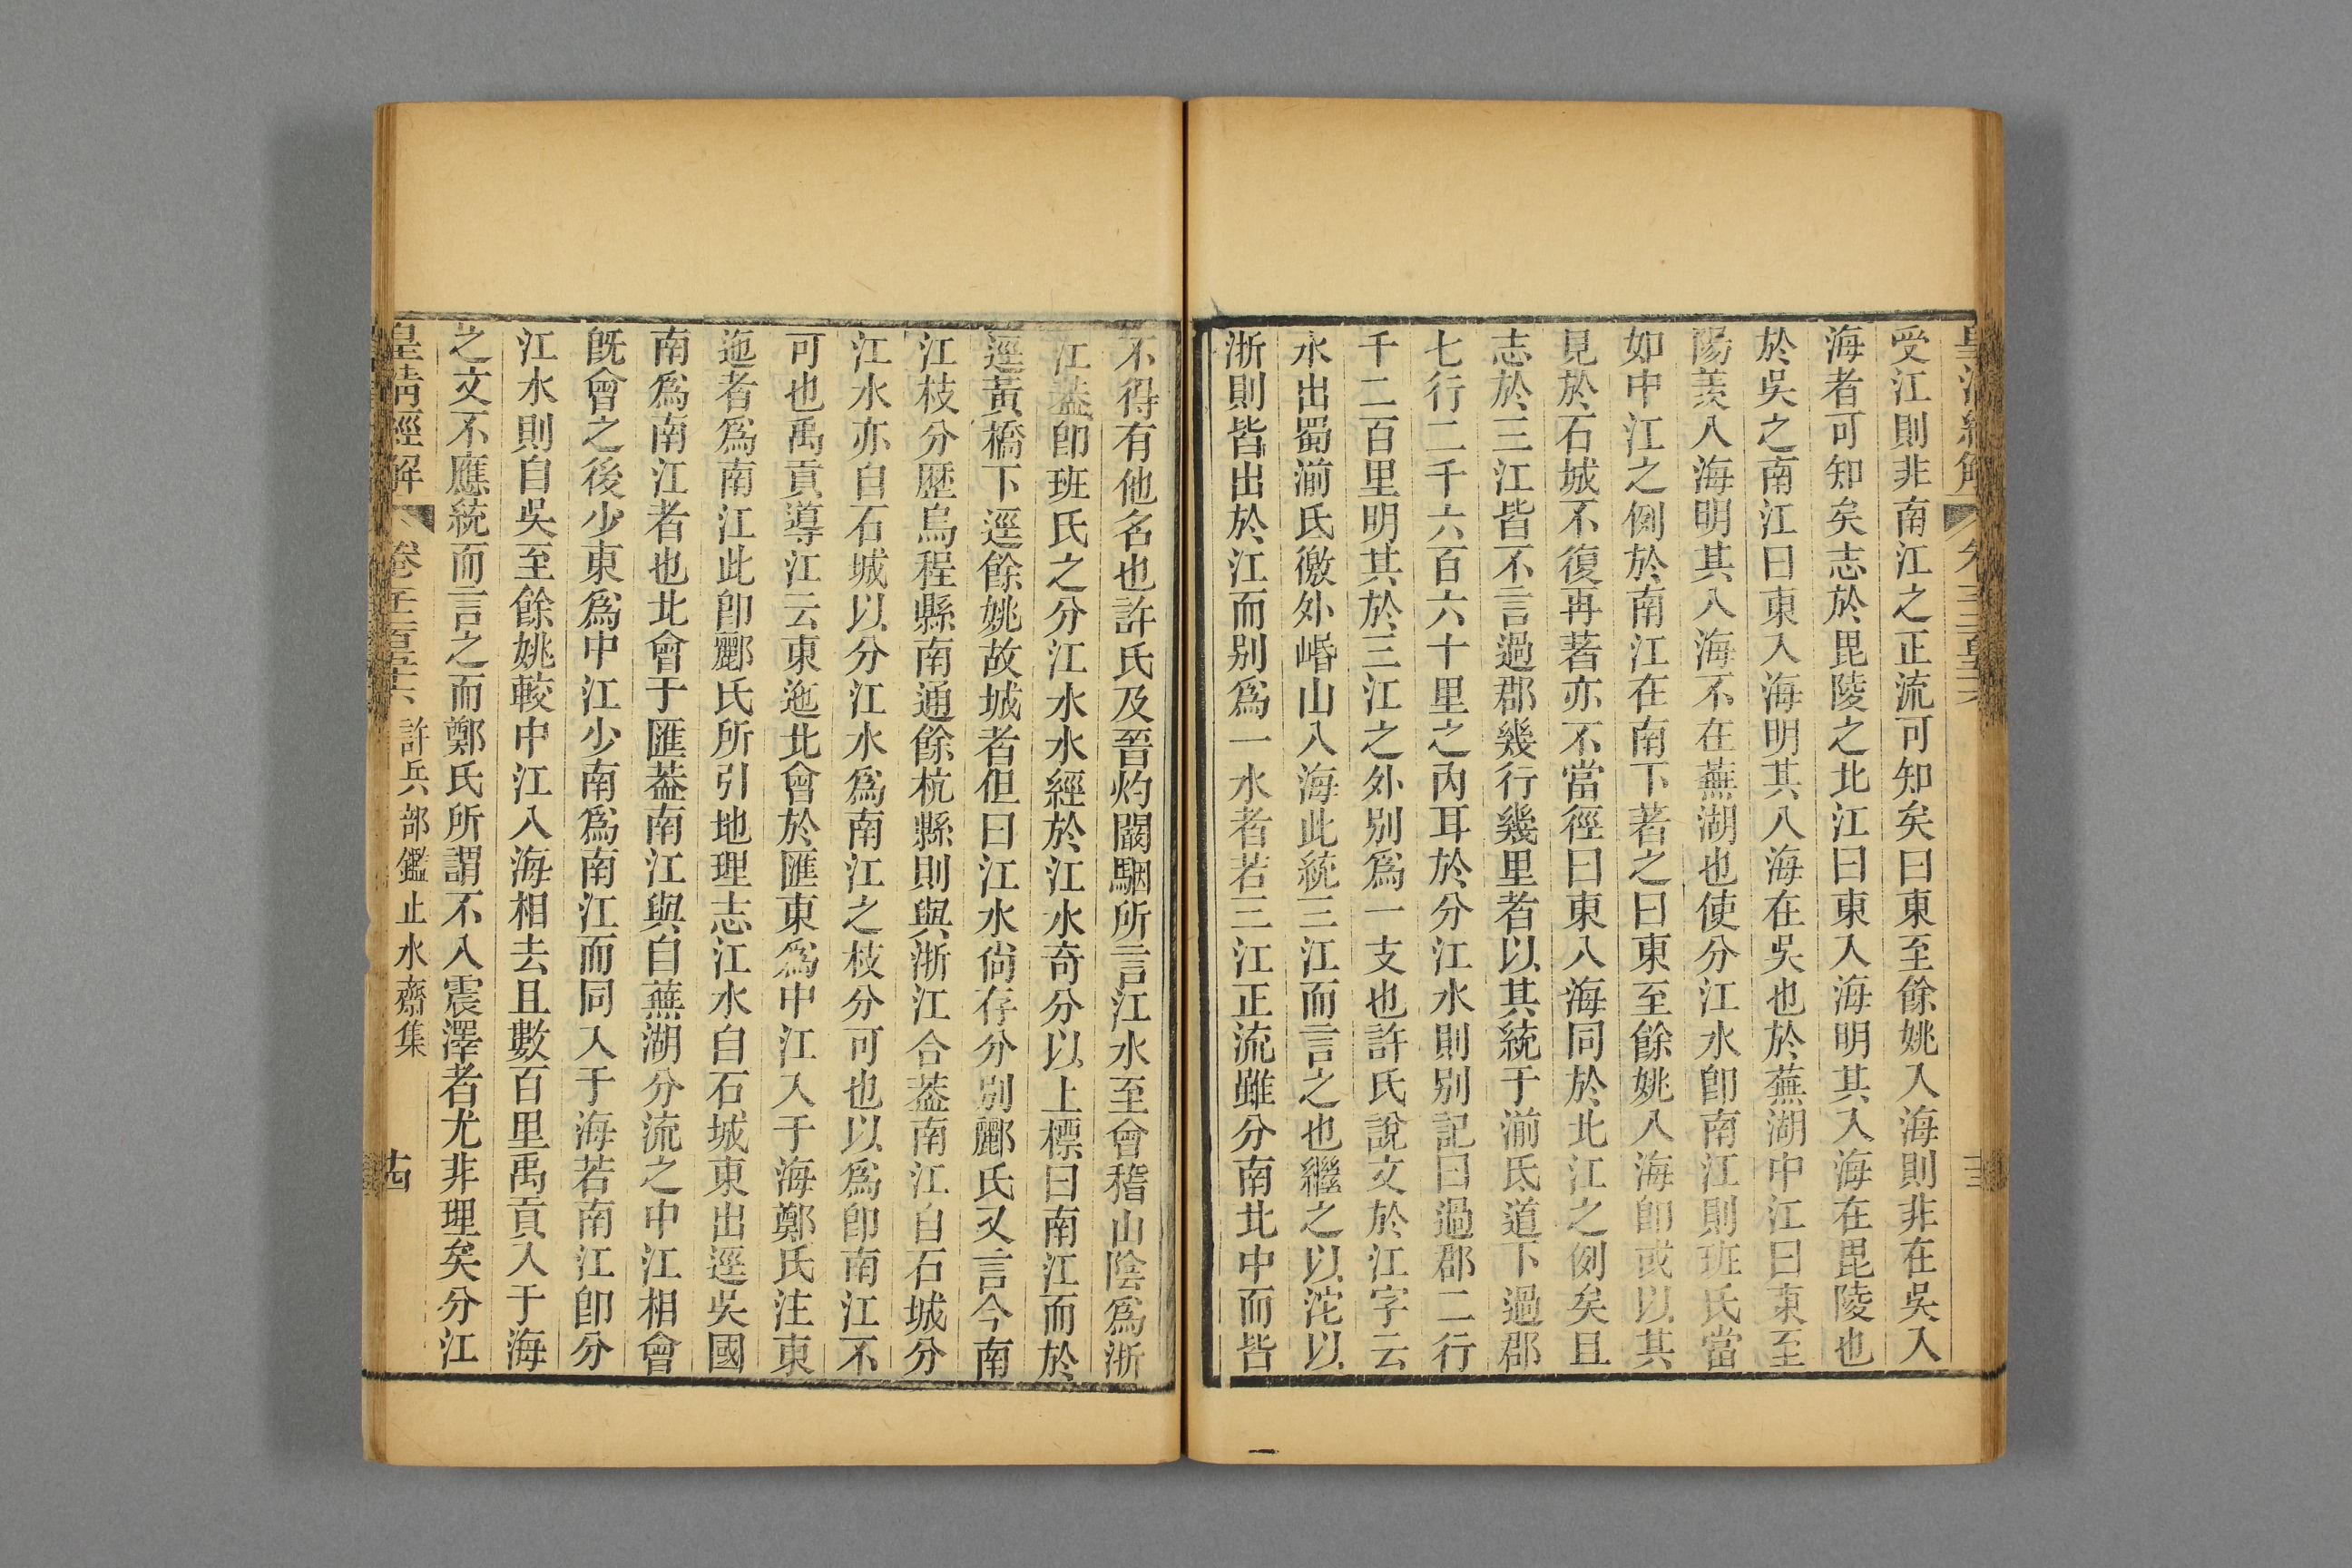 受江則非南江之正流可知矣曰東至餘姚入海則非在吳入
海者可知矣志於毘陵之北江曰東入海明其入海在毘陵也
於吳之南江曰東入海明其入海在吳也於蕪湖中江曰東至
陽羨入海明其入海不在蕪湖也使分江水卽南江則班氏當
如中江之例於南江在南下著之曰東至餘姚入海卽或以其
見於石城不復再著亦不當徑曰東入海同於北江之例矣且
志於三江皆不言過郡幾行幾里者以其統于湔氐道下過郡
七行二千六百六十里之內耳於分江水則別記曰過郡二行
千二百里明其於三江之外別爲一支也許氏說文於江字云
水出蜀湔氐徼外㟭山入海此統三江而言之也繼之以沱以
浙則皆出於江而別爲一水者若三江正流雖分南北中而皆
不得有他名也許氏及晉灼闞駰所言江水至會稽山陰爲浙
江葢卽班氏之分江水水經於江水奇分以上標曰南江而於
逕黃橋下逕餘姚故城者但曰江水尙存分別酈氏又言今南
江枝分歷烏程縣南通餘杭縣則與浙江合葢南江自石城分
江水亦自石城以分江水爲南江之枝分可也以爲卽南江不
可也禹貢導江云東迤北會於匯東爲中江入于海鄭氏注東
迤者爲南江此卽酈氏所引地理志江水自石城東出逕吳國
南爲南江者也北會于匯葢南江與自蕪湖分流之中江相會
旣會之後少東爲中江少南爲南江而同入于海若南江卽分
江水則自吳至餘姚較中江入海相去且數百里禹貢入于海
之文不應統而言之而鄭氏所謂不入震澤者尤非理矣分江
皇淸經解 許兵部鑑止水齋集 十四